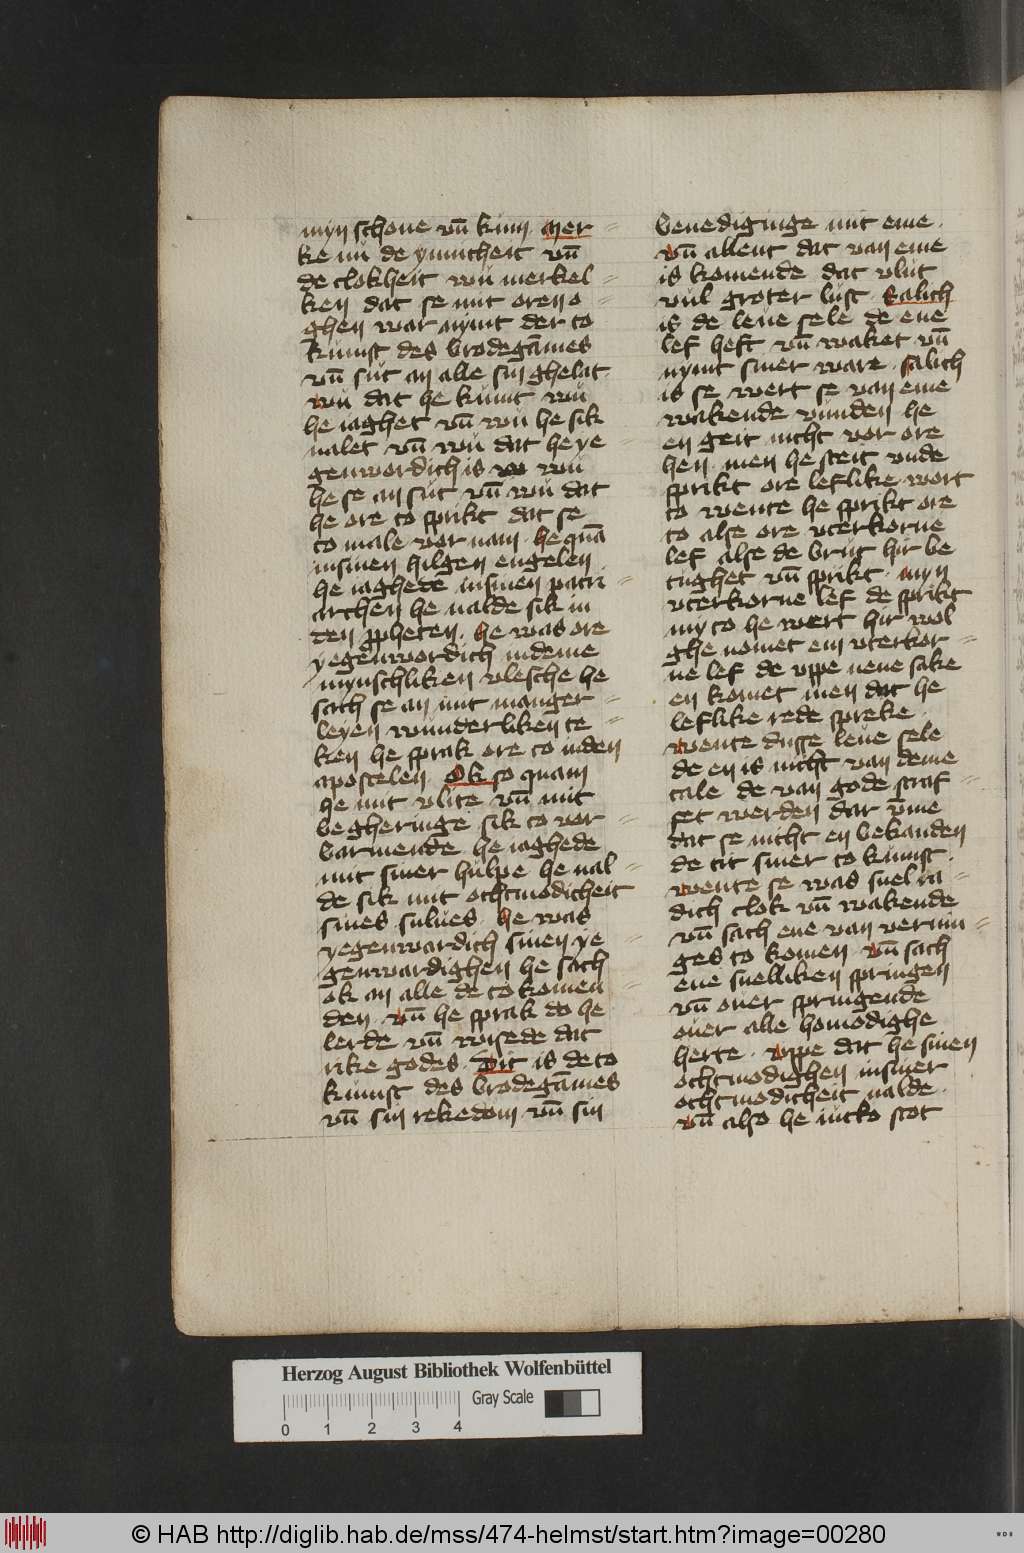 myn schone vn̄ kum Mer
ke nu de ynnicheit vn̄
de clokheit wu merkel
ken dat se mit oren o
ghen war nymt der to
kumst des brodegāmes
vn̄ sut an alle sin ghelat
wu dat he kumt wu
he iaghet vn̄ wu he sik
nalet vn̄ wu dat he ye
genwordich is wu
he se an sut vn̄ wu dat
he ore to sprikt dat se
to male vor nam he quā
in sinen hilgen engelen
he iaghede in sinen patri
archen he nalde sik in
den ppheten he was ore
yegenwordich in deme
mynschliken vlesche he
sach se an mit manger
leyen wunderliken te
ken he sprak ore to in den
apostelen Ok so quam
he mit vlite vn̄ mit
begheringe sik to vor
barmende he iaghede
mit siner hulpe he nal
de sik mit othmodicheit
sines sulues he was
yegenwardich sinen ye
genwardighen he sach
ok an alle de to komen
den vn̄ he sprak do he
lerde vn̄ wisede dat
rike godes Dit is de to
kumst des brodegāmes
vn̄ sin rekedom vn̄ sin
benediginge mit eme
vn̄ allent dat van eme
is komende dat vlut
vul groter lust Salich
is de leue sele de ene
lef heft vn̄ waket vn̄
nymt siner ware salich
is se wert se van eme
wakende vunden he
en geit nicht vor ore
hen men he steit vnde
sprikt ore leflike wort
to wente he sprikt ore
to alse ore vterkorne
lef alse de brut hir be
tughet vn̄ sprikt myn
vterkorne lef de sprikt
my to he wert hir wol
ghe nomet ein vterkor
ne lef de vppe nene sake
en komet men dat he
leflike rede spreke
wente dusse leue sele
de en is nicht van deme
tale de van gode straf
fet werden dar v̄me
dat se nicht en bekanden
de tit siner to kumst
wente se was snel ra
dich clok vn̄ wakende
vn̄ sach ene van vernin
ges to komen vn̄ sach
ene snelliken springen
vn̄ ouer springende
ouer alle homodighe
herte vppe dat he sinen
othmodighen in siner
othmodicheit nalde
vn̄ also he iucko stot
Herzog August Bibliothek Wolfenbüttel
0 1 2 3 4 Gray Scale
© HAB http://diglib.hab.de/mss/474-helmst/start.htm?image=00280